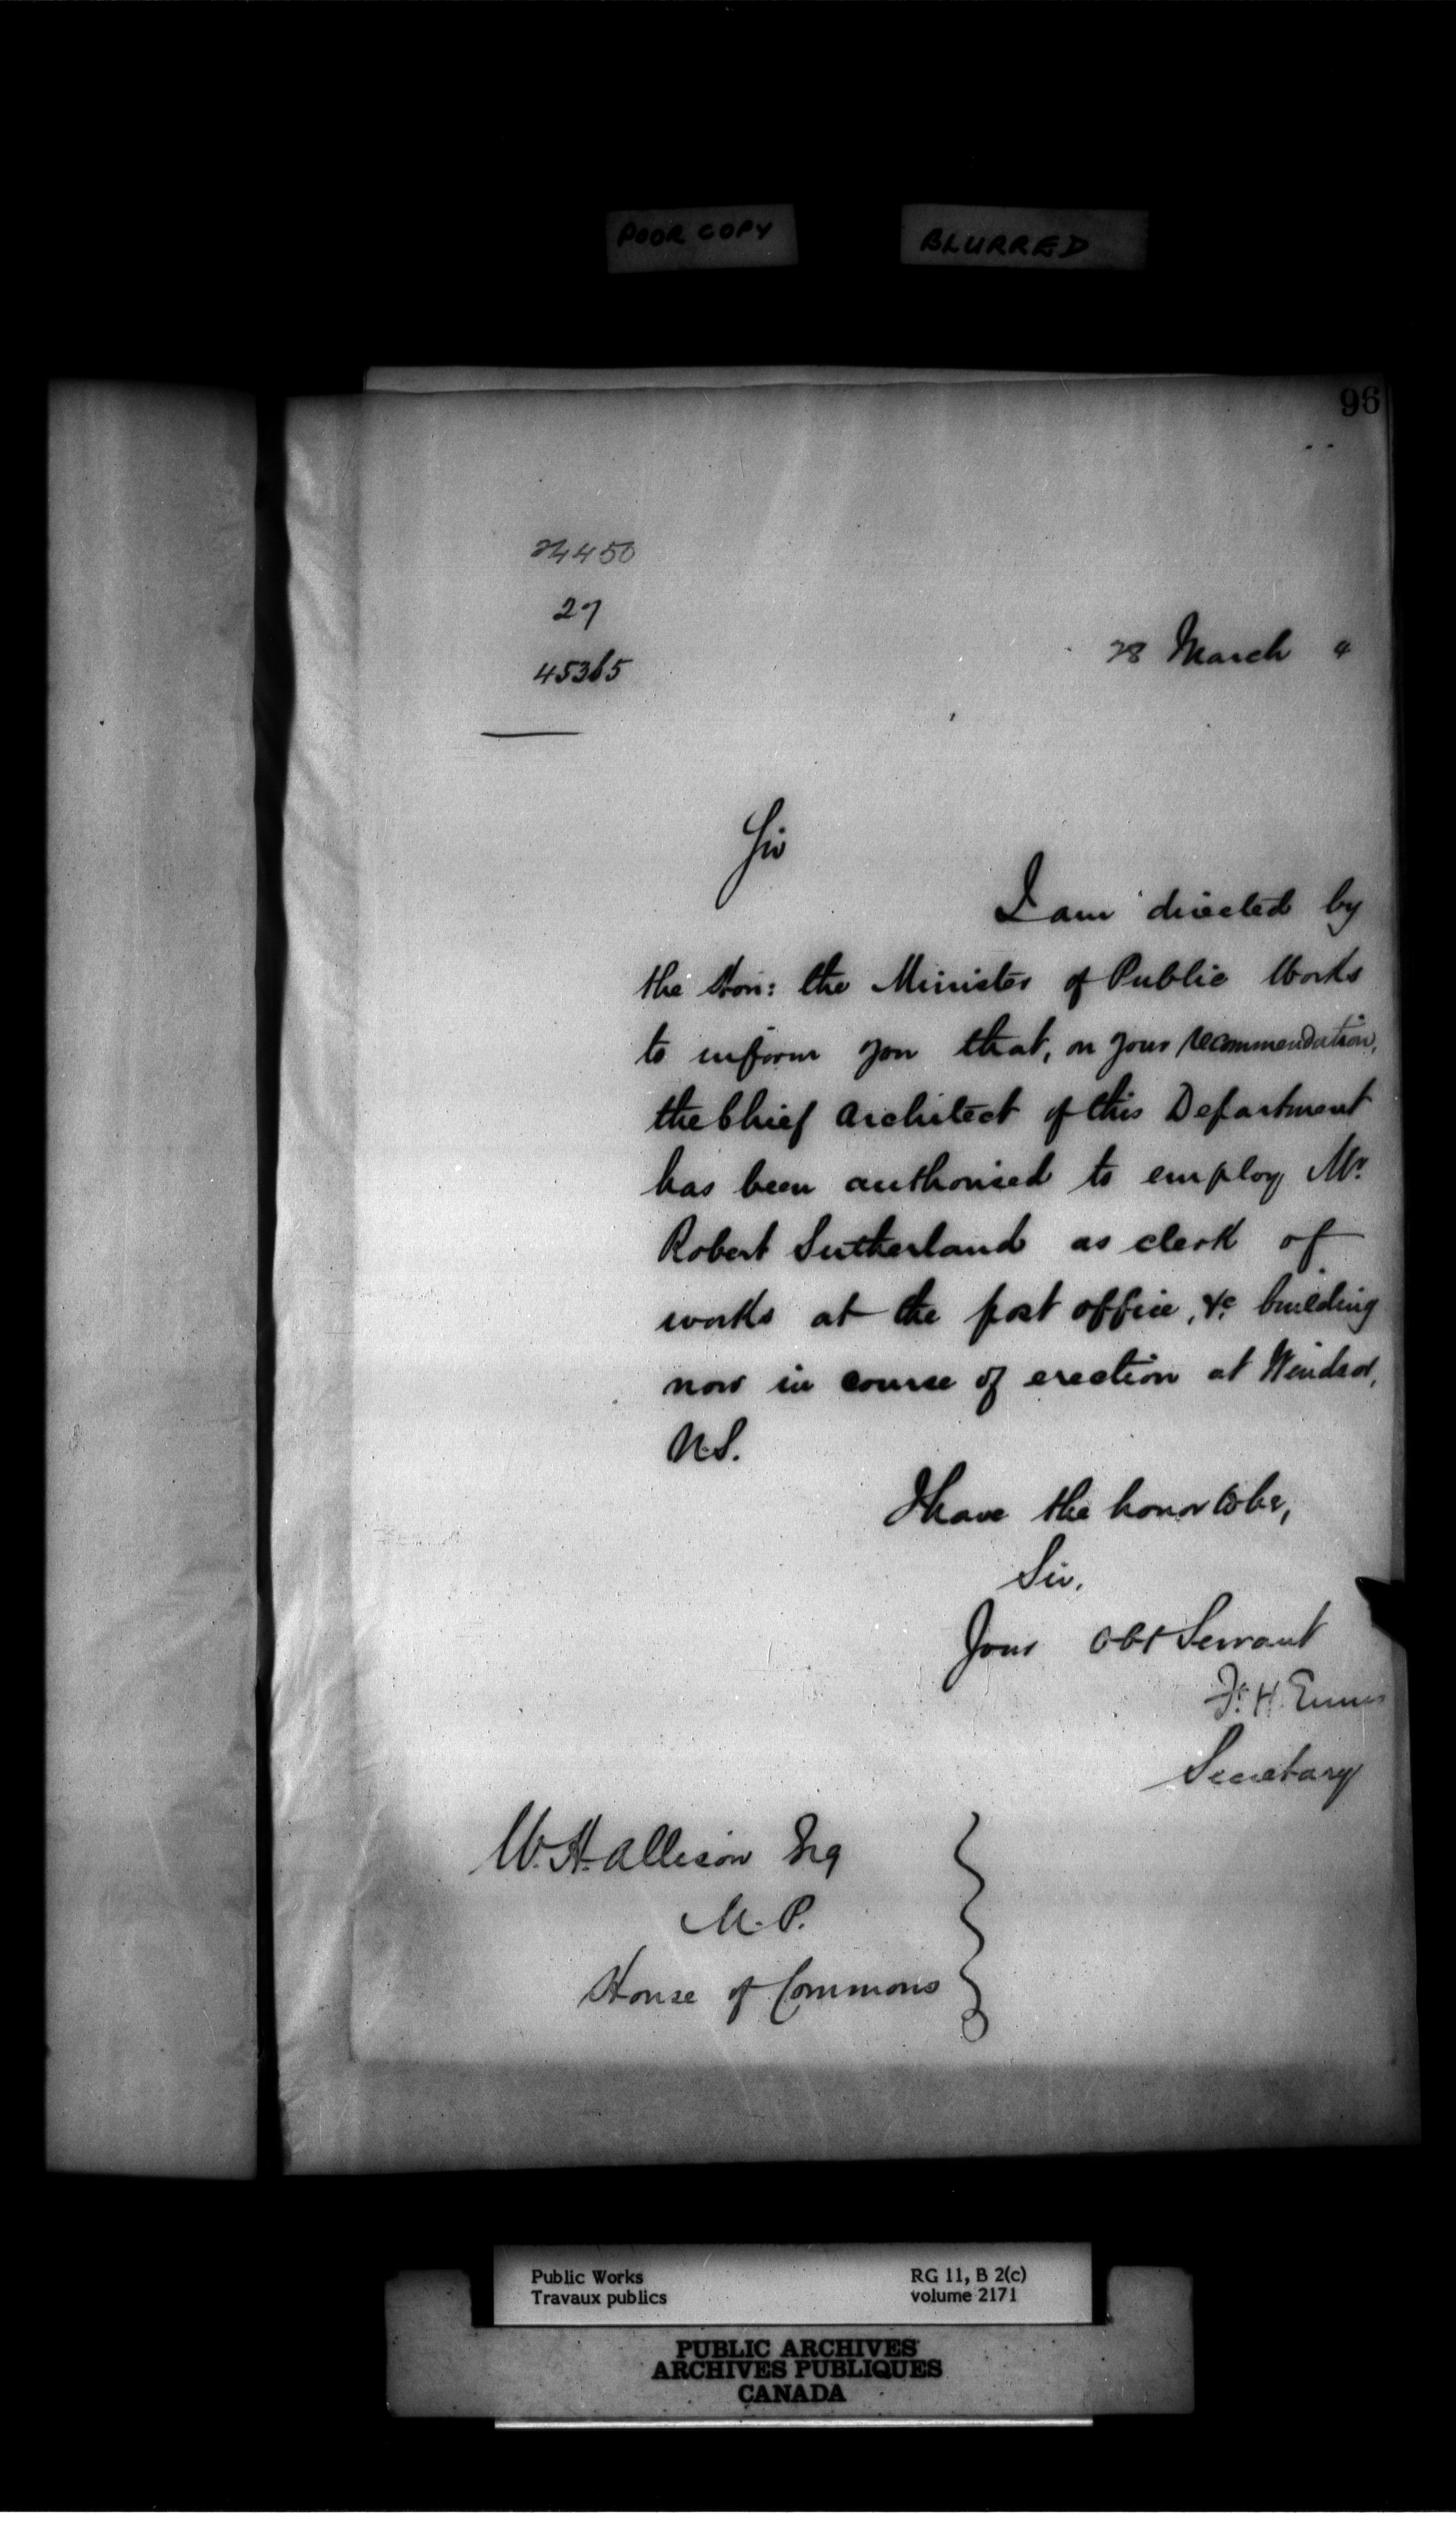 POOR COPY
BLURRED
96
27
28 March 4
Sir
I am directed by
the Hon: the Minister of Public Works
to inform you that, on your recommendation,
the Chief Architect of this Department
has been authorised to employ Mr.
Robert Sutherland as clerk of
works at the post office, &c building
now in course of erection at Windsor,
N.S.
I have the honor to be,
Sir,
Your Obt Servant
F. H. Ennis
Secretary
W. H. Allison Esq
M. P.
House of Commons
Public Works
Travaux publics
RG 11, B 2(c)
volume 2171
PUBLIC ARCHIVES
ARCHIVES PUBLIQUES
CANADA